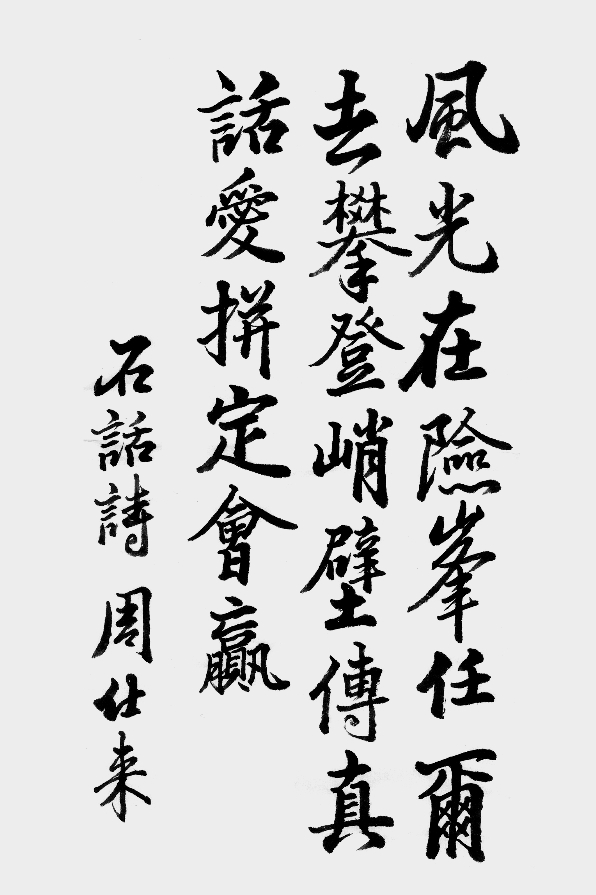 風光在險峯任爾
去攀登峭壁傳真
話愛拼定會贏
石話詩 周仕来